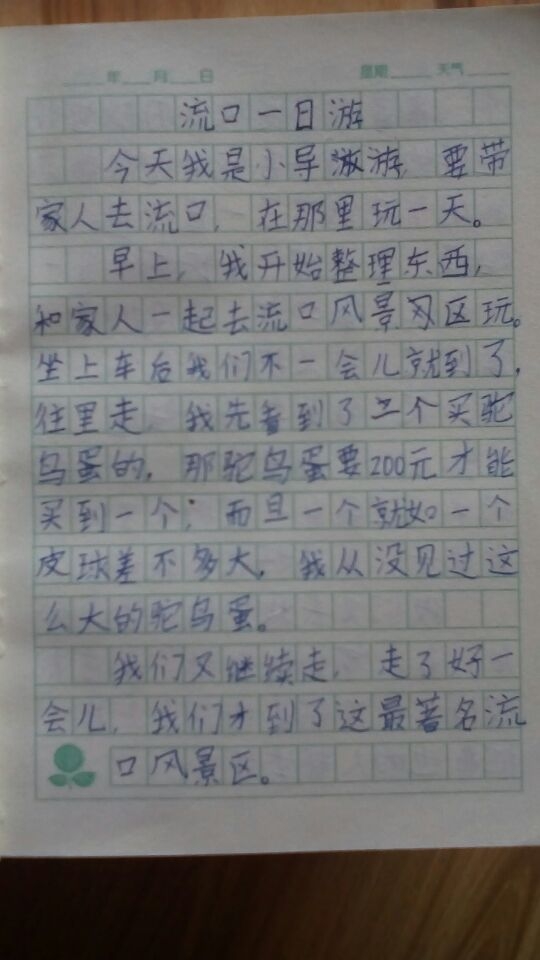 年 月 日 星期 天气
流口一日游
今天我是小导激游，要带
家人去流口，在那里玩一天。
早上，我开始整理东西，
和家人一起去流口风景区玩。
坐上车后我们不一会儿就到了，
往里走，我先看到了二个买驼
鸟蛋的，那驼鸟蛋要200元才能
买到一个；而旦一个就如一个
皮球差不多大，我从没见过这
么大的驼鸟蛋。
我们又继续走，走了好一
会儿，我们才到了这最著名流
口风景区。